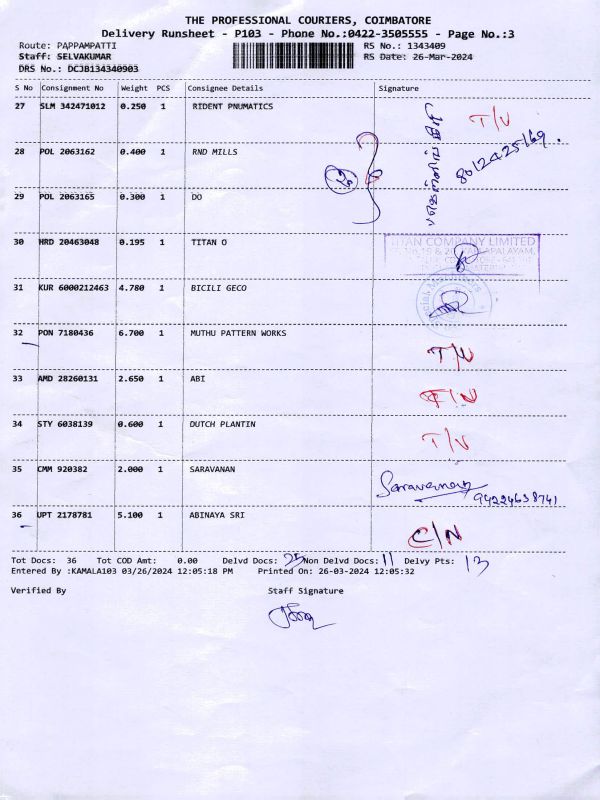 THE PROFESSIONAL COURIERS, COIMBATORE
Delivery Runsheet - P103 - Phone No.:0422-3505555 - Page No.:3
Route: PAPPAMPATTI
RS No.: 1343409
Staff: SELVAKUMAR
RS Date: 26-Mar-2024
DRS No.: DCJB134340903
S No Consignment No Weight PCS Consignee Details Signature
27 SLM 342471012 0.250 1 RIDENT PNUMATICS T/N
28 POL 2063162 0.400 1 RND MILLS 8012425169.
29 POL 2063165 0.300 1 DO
30 HRD 20463048 0.195 1 TITAN O
TITAN COMPANY LIMITED
31 KUR 6000212463 4.780 1 BICILI GECO
32 PON 7180436 6.700 1 MUTHU PATTERN WORKS T/N
33 AMD 28260131 2.650 1 ABI
34 STY 6038139 0.600 1 DUTCH PLANTIN T/N
35 CMM 920382 2.000 1 SARAVANAN Saravanan
94224638741
36 UPT 2178781 5.100 1 ABINAYA SRI C/N
Tot Docs: 36 Tot COD Amt: 0.00 Delvd Docs: 25 Non Delvd Docs: 11 Delvy Pts: 13
Entered By :KAMALA103 03/26/2024 12:05:18 PM Printed On: 26-03-2024 12:05:32
Verified By Staff Signature